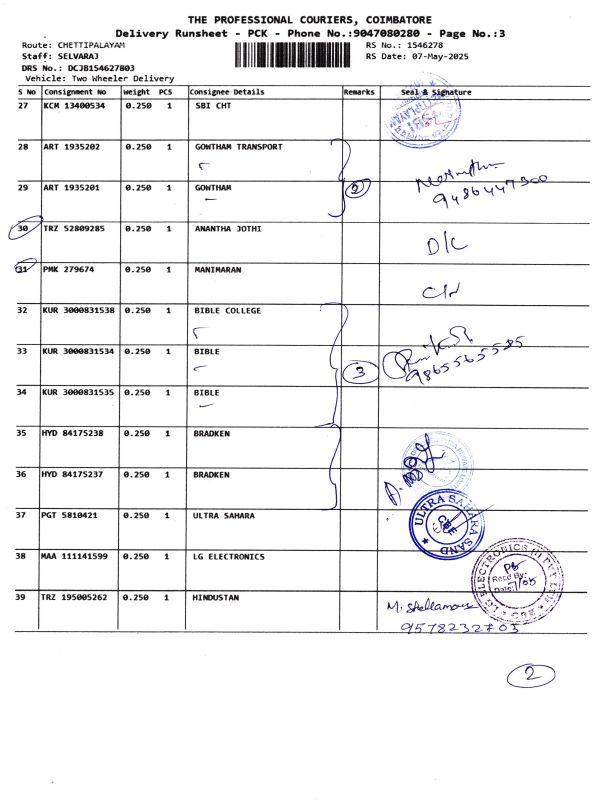 THE PROFESSIONAL COURIERS, COIMBATORE
Delivery Runsheet - PCK - Phone No.:9047080280 - Page No.:3
Route: CHETTIPALAYAM RS No.: 1546278
Staff: SELVARAJ RS Date: 07-May-2025
DRS No.: DCJB154627803
Vehicle: Two Wheeler Delivery
S No Consignment No Weight PCS Consignee Details Remarks Seal & Signature
27 KCM 13400534 0.250 1 SBI CHT
28 ART 1935202 0.250 1 GOWTHAM TRANSPORT
29 ART 1935201 0.250 1 GOWTHAM 2
9486447300
30 TRZ 52809285 0.250 1 ANANTHA JOTHI
D/C
31 PMK 279674 0.250 1 MANIMARAN
32 KUR 3000831538 0.250 1 BIBLE COLLEGE
33 KUR 3000831534 0.250 1 BIBLE 3
34 KUR 3000831535 0.250 1 BIBLE
35 HYD 84175238 0.250 1 BRADKEN
36 HYD 84175237 0.250 1 BRADKEN
37 PGT 5810421 0.250 1 ULTRA SAHARA
ULTRA SAHARA SAND
CBE
38 MAA 111141599 0.250 1 LG ELECTRONICS
LG ELECTRONICS
Recd By:
Date: 7/05
39 TRZ 195005262 0.250 1 HINDUSTAN
9578232703
2